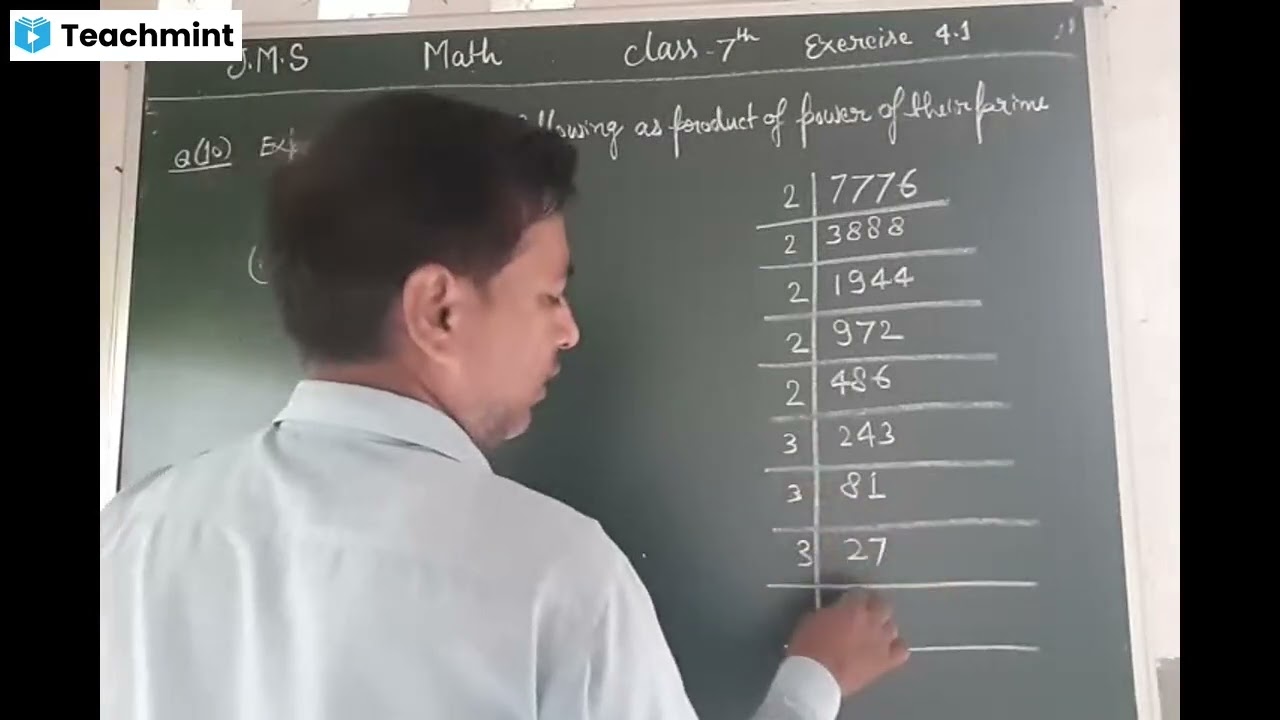 Teachmint
J.M.S Math Class-7th Exercise 4.1
Q(10) as product of power of their prime
2 7776
2 3888
2 1944
2 972
2 486
3 243
3 81
3 27